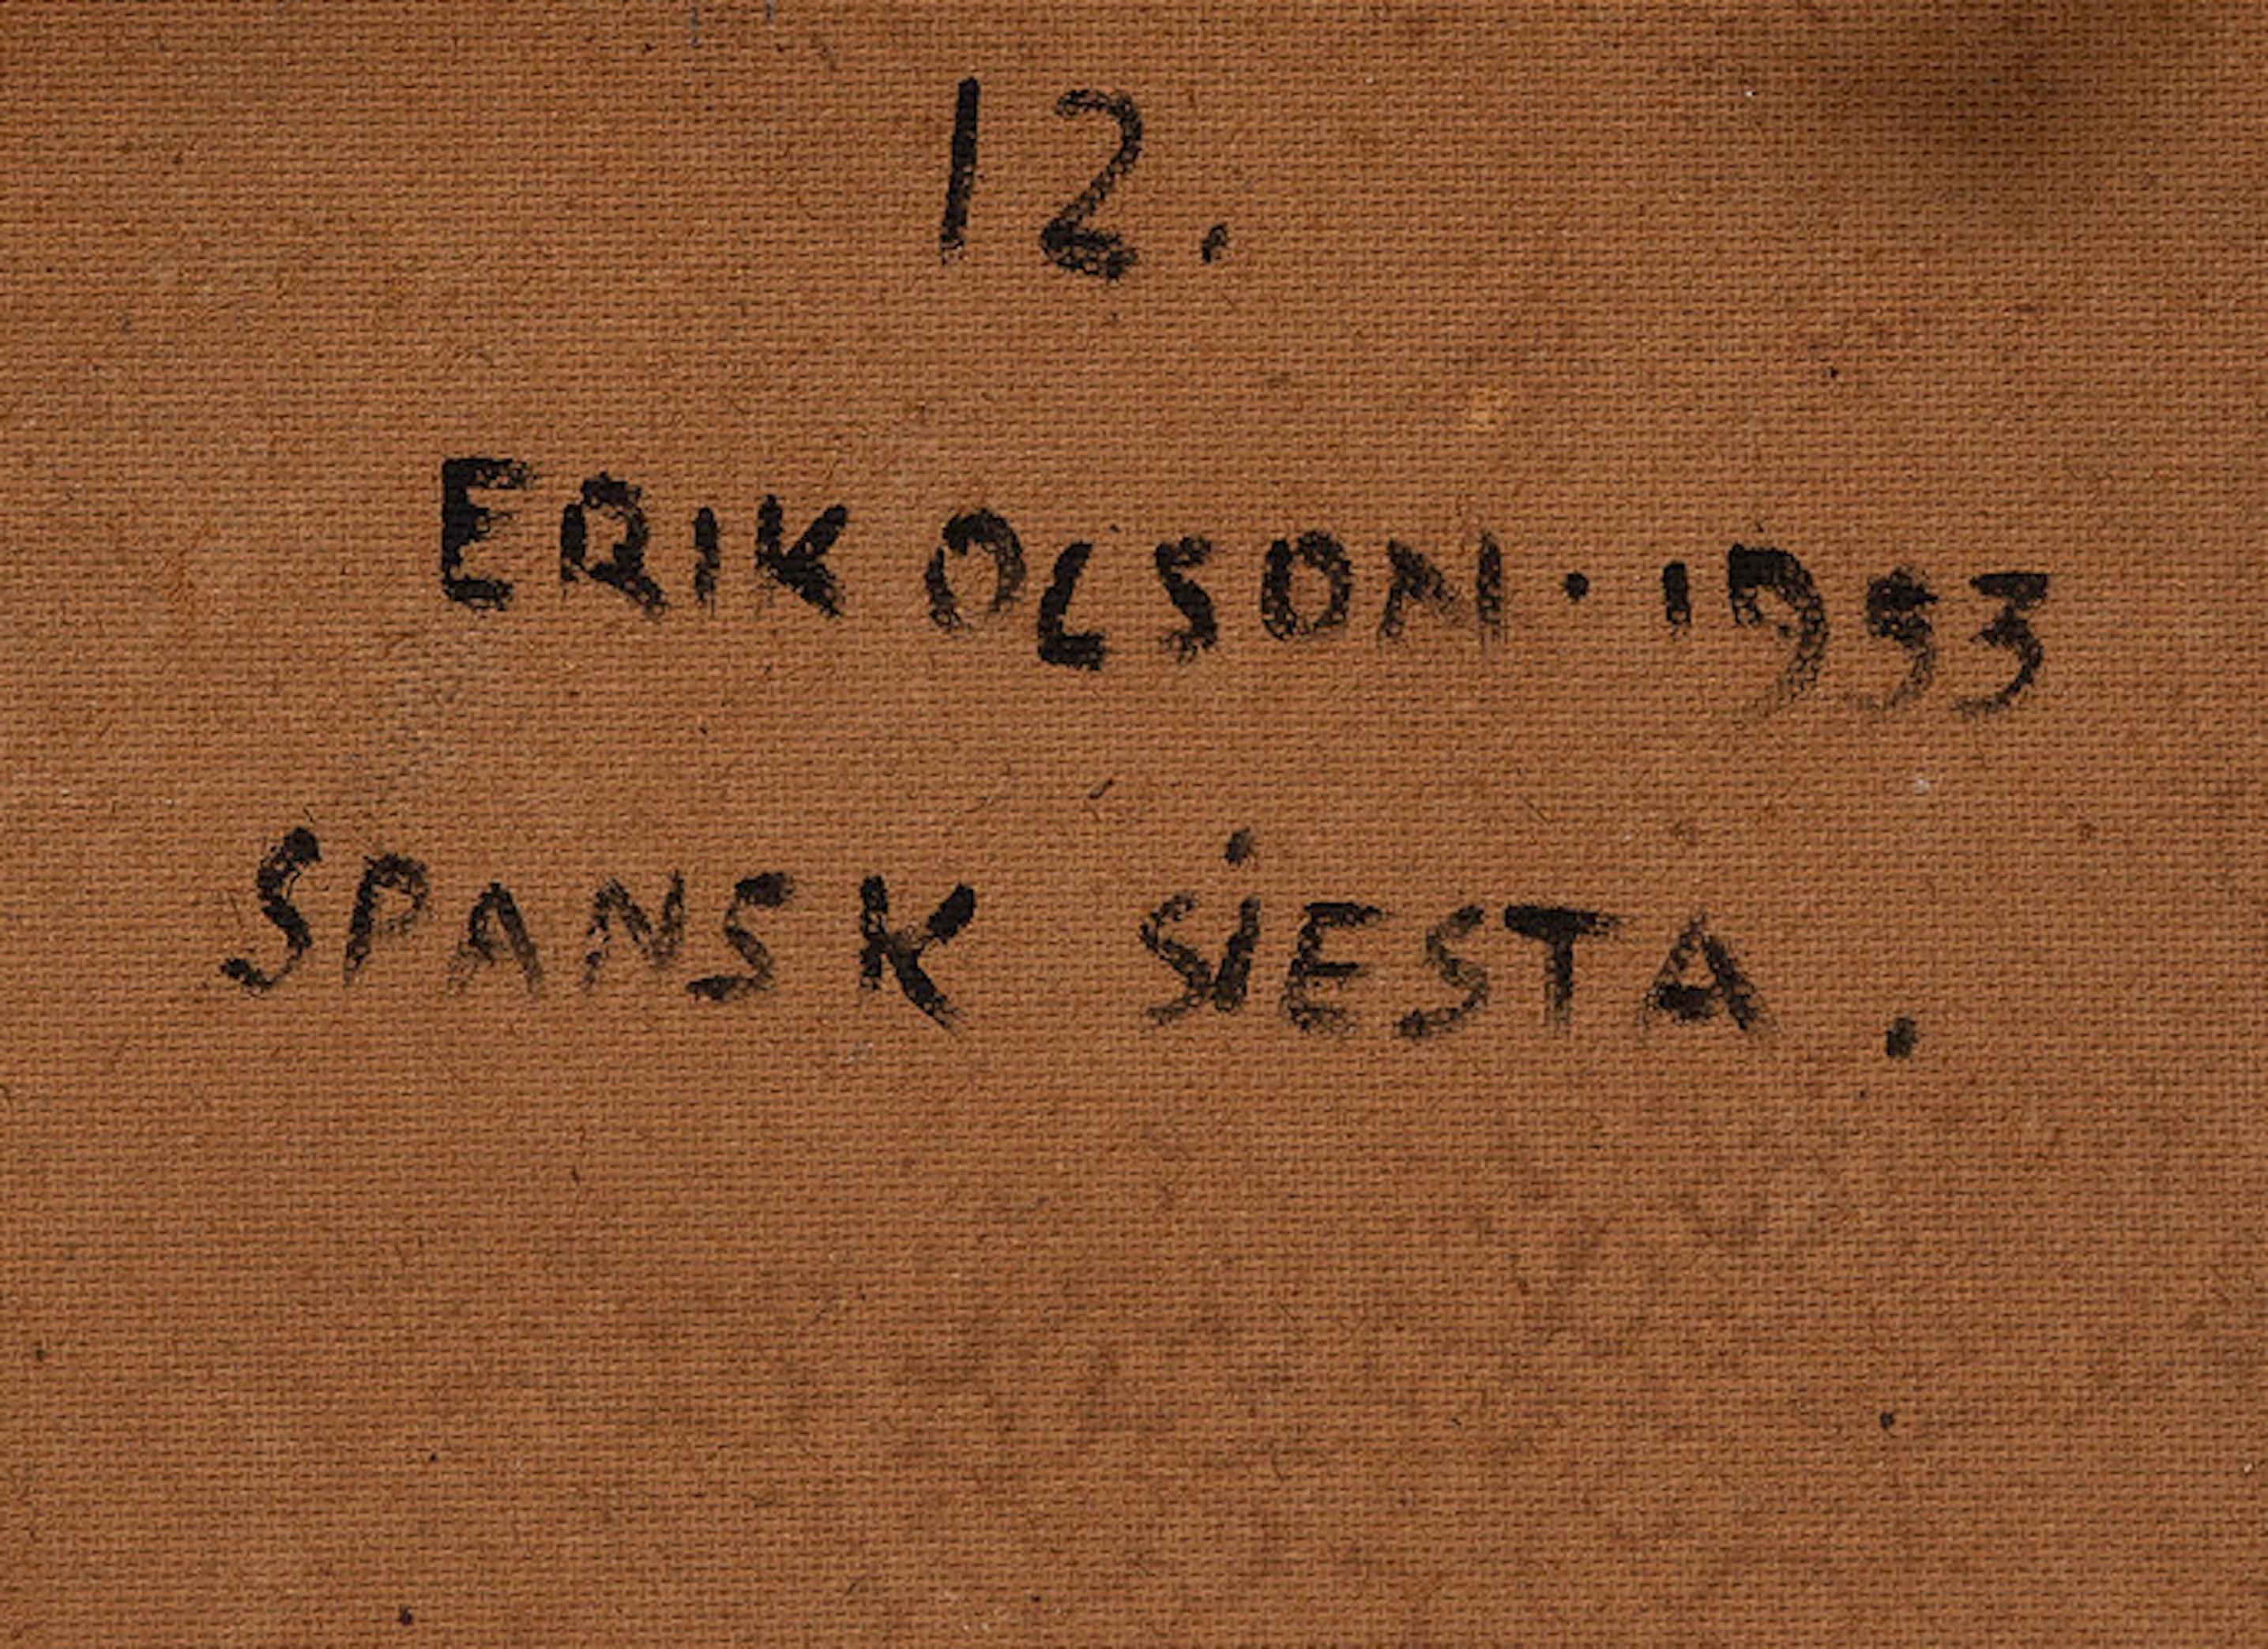 12.
ERIK OLSON · 1953
SPANSK SiESTA.